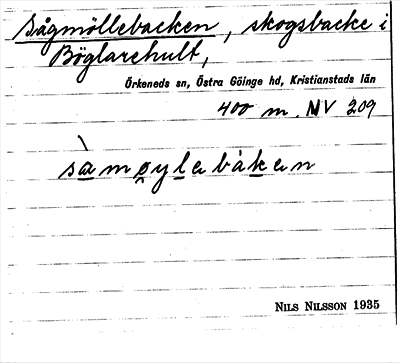 Sågmöllebacken, skogsbacke i
Böglarehult,
Örkeneds sn, Östra Göinge hd, Kristianstads län
400 m. NV 209
sàmøylebàken
NILS NILSSON 1935